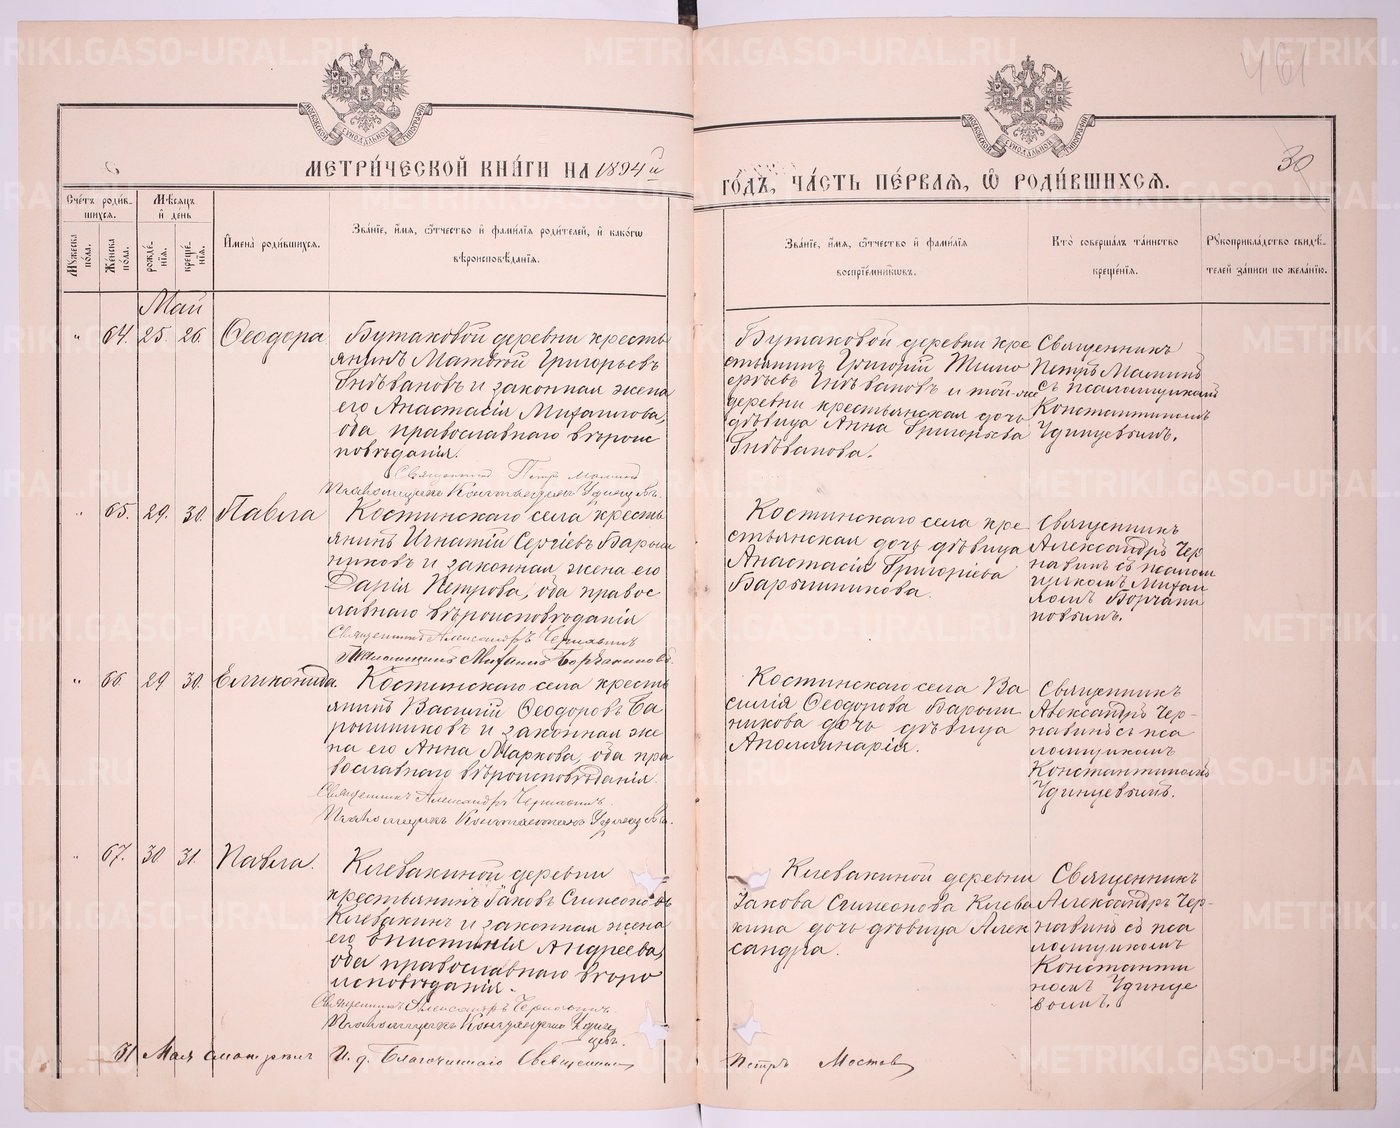 461
30
МЕТРИ́ЧЕСКОЙ КНИ́ГИ НА 1894 й
ГО́ДЪ, ЧА́СТЬ ПЕ́РВАЯ, Ѡ҆ РОДИ́ВШИХСѦ.
Сче́тъ роди́в-
шихся.
Мѣ́сяцъ
и҆ де́нь
Му́жеска по́ла.
Же́нска по́ла.
рожде́-
нїя.
креще́-
нїя.
И҆мена̀ роди́вшихся.
Зва́нїе, и҆́мя, ѻ҆́тчество и҆ фами́лїя роди́телей, и҆ како́гѡ
вѣроисповѣ́данїя.
Зва́нїе, и҆́мя, ѻ҆́тчество и҆ фами́лїя
воспрїе́мникѡвъ.
Кто̀ соверша́лъ та́инство
креще́нїя.
Рꙋкоприкла́дство свидѣ́-
телей за́писи по жела́нїю.
Май
" 64. 25. 26. Ѳеодора
Бутаковой деревни кресть
янинъ Матѳей Григорьевъ
Індѣвановъ и законная жена
его Анастасія Михаилова,
оба православнаго вѣроис
повѣданія.
Священникъ Петръ Малинъ
Псаломщикъ Константинъ Удинцевъ.
Бутаковой деревни кре
стьянинъ Григорій Тимо
деревни крестьянская дочь
дѣвица Анна Григорьева
Індѣванова.
Священникъ
Петръ Малинъ
съ псаломщикомъ
Константиномъ
Удинцевымъ.
" 65. 29. 30. Павла
Костинскаго села кресть
янинъ Игнатій Сергіевъ Барыш
никовъ и законная жена его
Дарія Петрова, оба правос
лавнаго вѣроисповѣданія
Священникъ Александръ Чернавинъ
Псаломщикъ Михаилъ Борчаниновъ.
Костинскаго села кре
стьянская дочь дѣвица
Анастасія Григоріева
Барышникова.
Священникъ
Александръ Чер
навинъ съ псалом
щикомъ Михаи
ломъ Борчани
новымъ.
" 66. 29 30. Еликонида.
Костинскаго села кресть
янинъ Василій Ѳеодоровъ Ба
рышниковъ и законная же
на его Анна Маркова, оба пра
вославнаго вѣроисповѣданія.
Священникъ Александръ Чернавинъ.
Псаломщикъ Константинъ Удинцевъ.
Костинскаго села Ва
силія Ѳеодорова Барыш
никова дочь дѣвица
Аполлинарія.
Священникъ
Александръ Чер-
навинъ съ пса
ломщикомъ
Константиномъ
Удинцевымъ.
" 67. 30 31. Павла.
Клевакиной деревни
крестьянинъ Іаковъ Симеоновъ
Клевакинъ и законная жена
его Епистимія Андреева,
оба православнаго вѣро
исповѣданія.
Священникъ Александръ Чернавинъ.
Псаломщикъ Константинъ Удин
цевъ.
Клевакиной деревни
Іакова Симеонова Клева
кина дочь дѣвица Алек
сандра.
Священникъ
Александръ Чер-
навинъ съ пса
ломщикомъ
Константи
номъ Удинце
вымъ.
31 Мая смотрѣлъ И. д. Благочиннаго Священникъ Петръ Мостовъ
METRIKI.GASO-URAL.RU